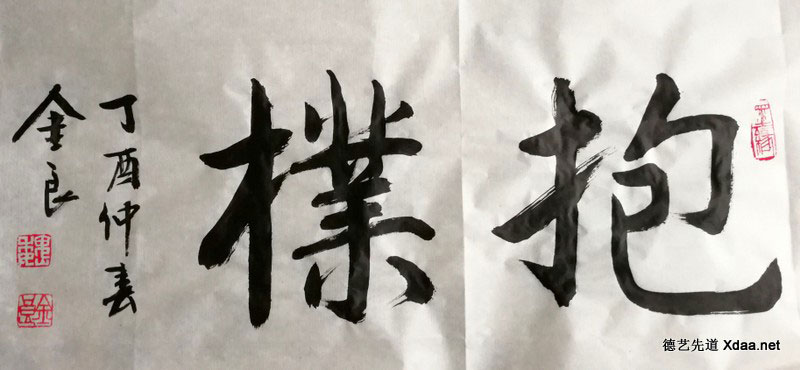 抱樸
丁酉仲春
金良
德艺先道 Xdaa.net